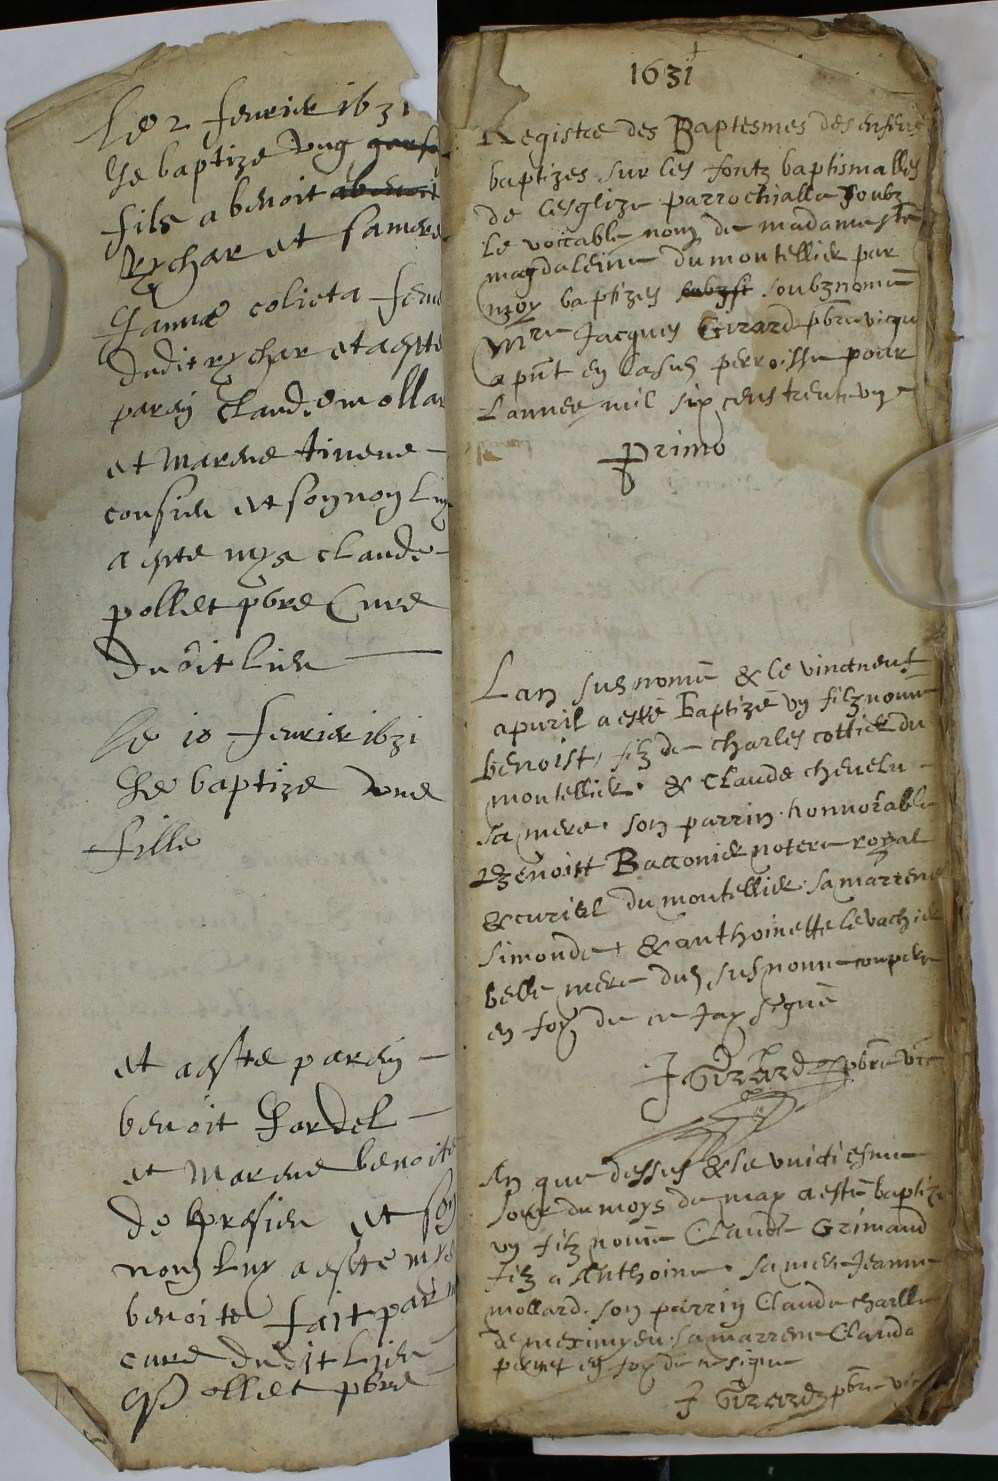 Le 2 feuvrier 1631
Je baptize dung garso
fils a benoit abenoit
Rychar et sa mere
Janne colieta feme
dudit rychar et a este
pareý Claude mollar
et Marene tivene
cousiere et son nom luy
a este mys claude
pollet pbre Cure
dudit lieu
Le 10 feuvrier 1631
Je baptize dune
fille
et a este pareý
benoit Jardel
et Marene benoite
de et son
nom luy a este mys
benoite fait par m
cure dudit lieu
Pollet pbre
1631
Registre des Baptesmes des enfens
baptizes sur les fontz baptismalles
de lesglize parrochialle soubz
le voccable nom de madame ste
magdaleine du montellier par
moy baptizes soubzst soubznomé
Mre Jacques Girard pbre vicqe
a pnt en lasus perroisse pour
Lannee mil six cens trente ung
Primo
Lan susnomé & le vinctneuf
apvril a esté baptizé ung filz nomé
benoist, filz de charles cottier du
montellier & Claude chevelu
sa mere. son parrin honnorable
Benoist Bacconier notere royal
& curial du montellier. sa marrene
simonde & anthoinette levachier
belle mere dud susnomé compere
en foy de ce Jay signé
J Girard pbre vice
An que dessus & le huictiesme
Jour du moys de may a esté baptizé
ung filz nomé Claude Grimaud
filz a Anthoine. sa mere Jeanne
mollard. son parrin Claude charlle
de meximyeu. sa marrene Clauda
pernet en foy de ce signe
J Girard pbre vic